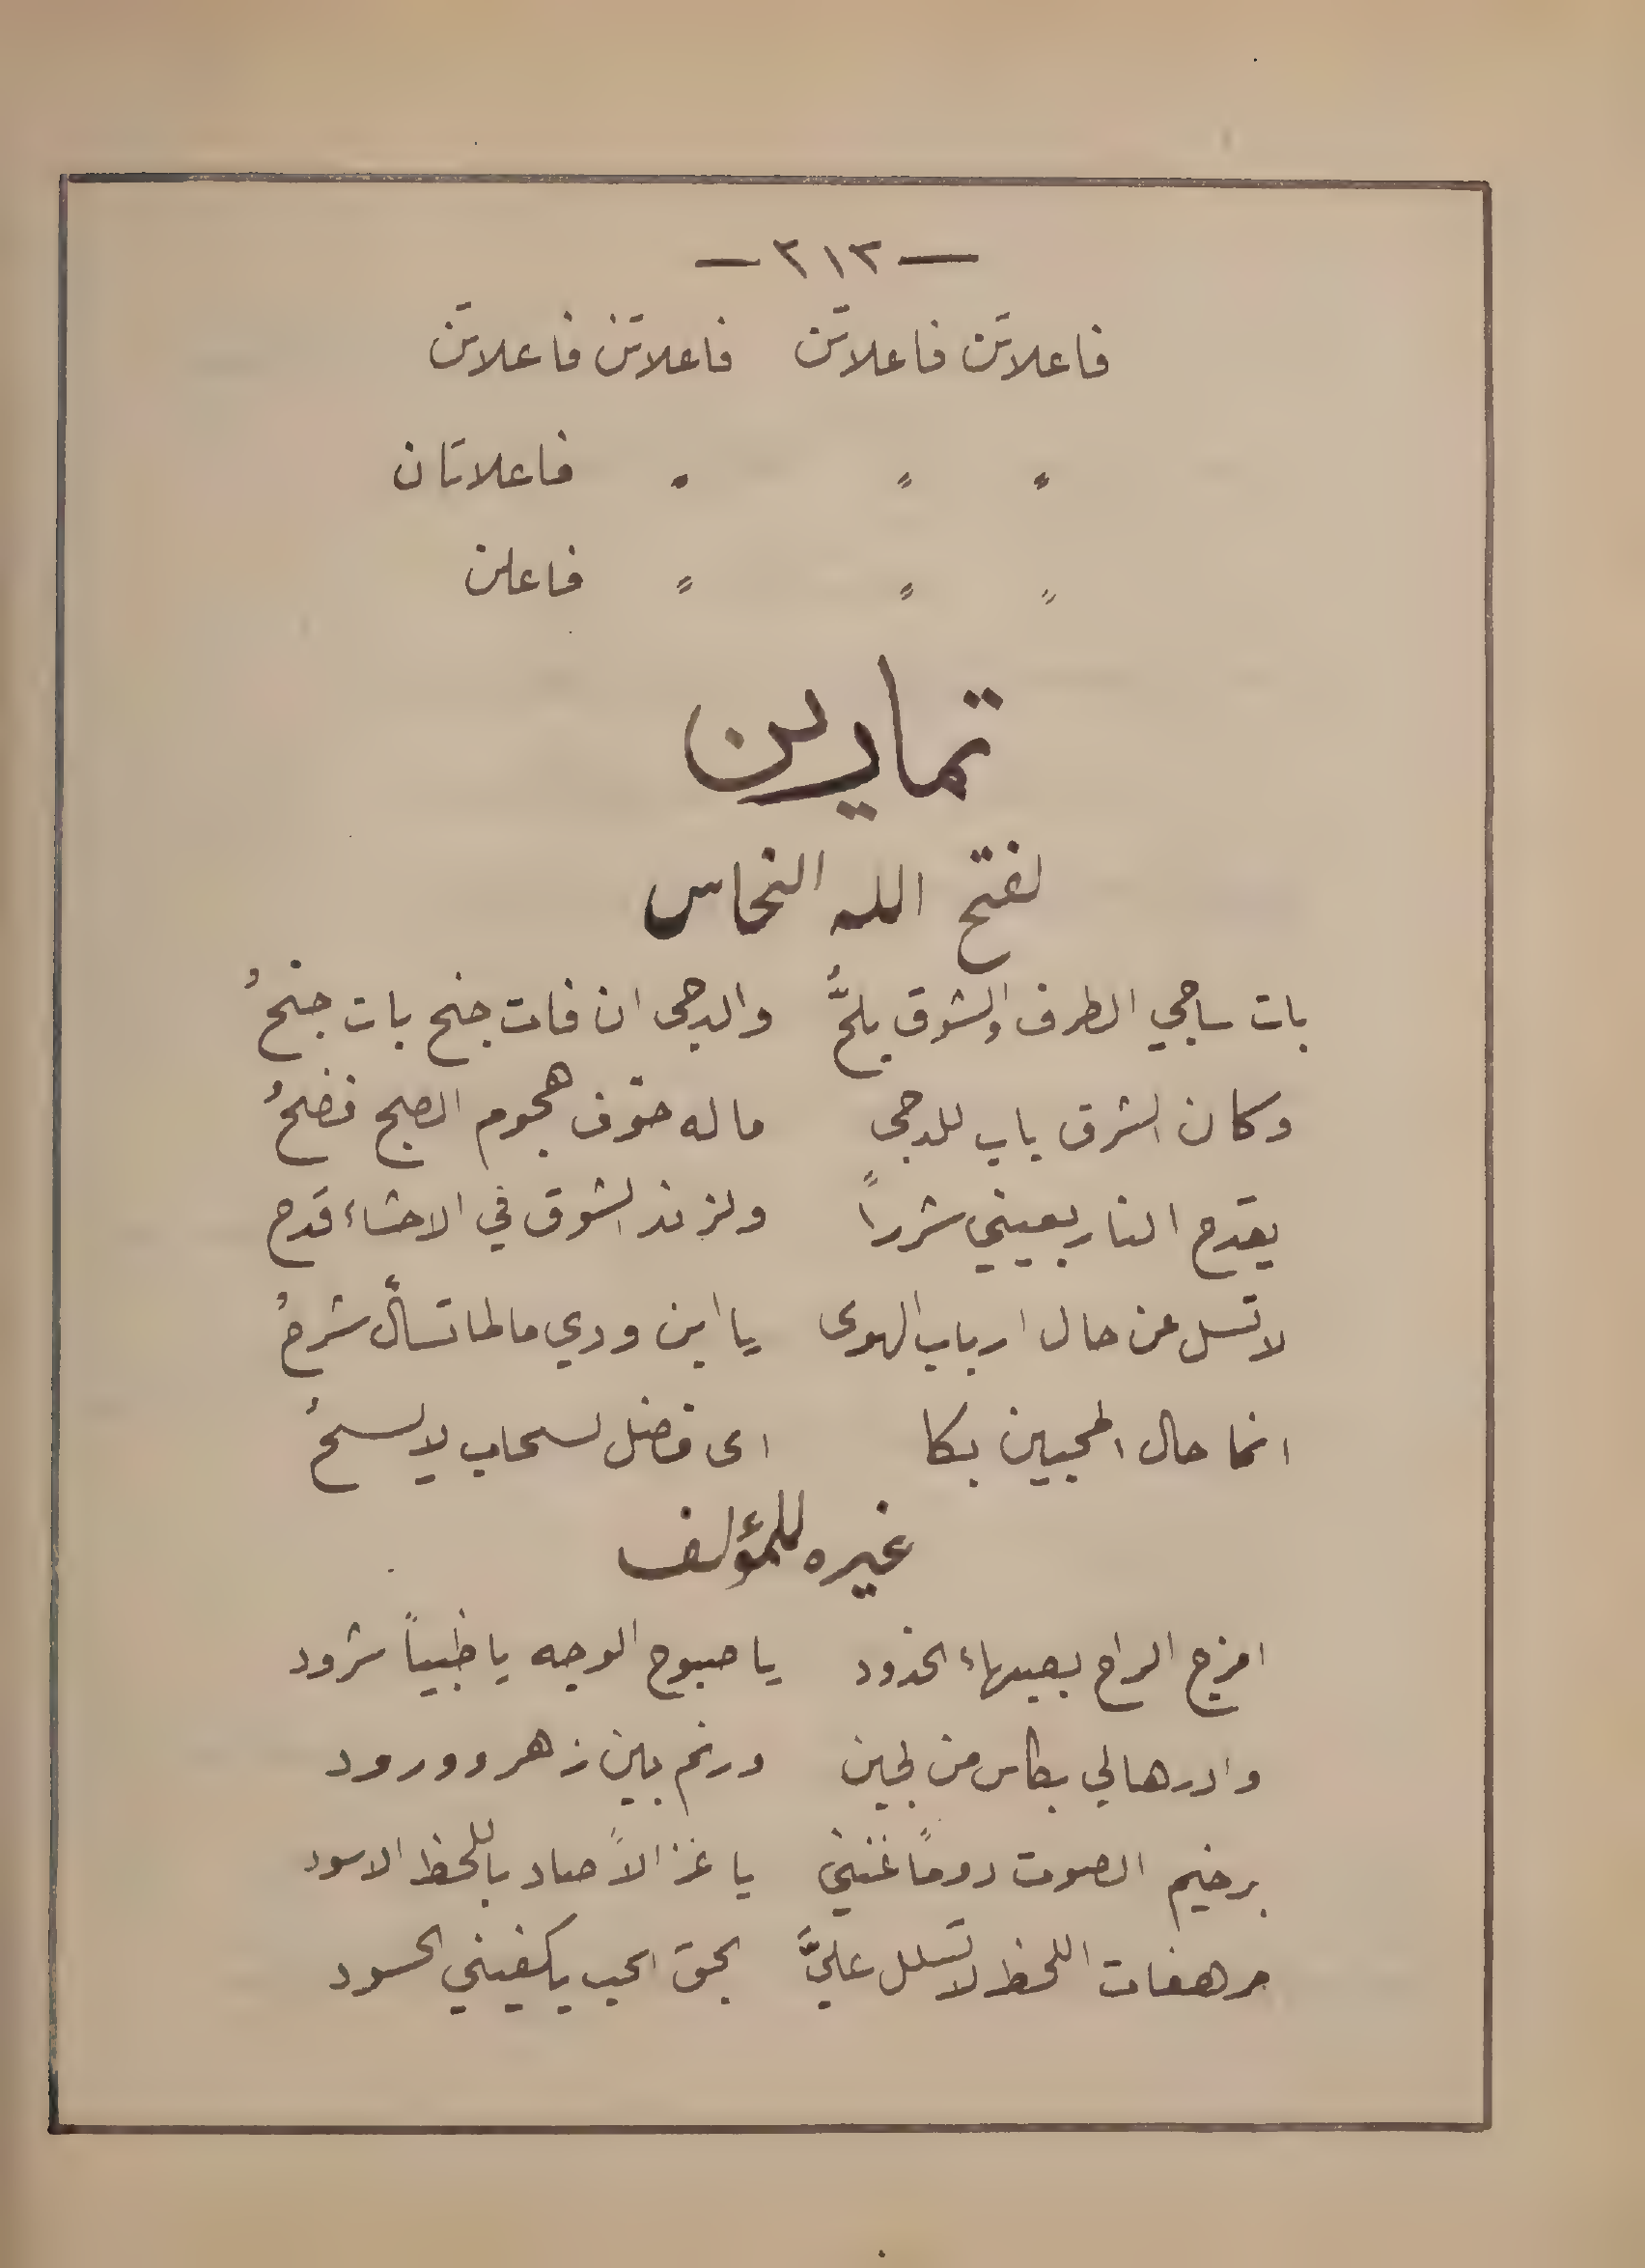 — ٢١٢ —
فاعلاتن فاعلاتن فاعلاتن فاعلاتن
〃 〃 〃 فاعلاتان
〃 〃 〃 فاعلن
تمارين
لفتح الله النحاس
بات ساجي الطرف والشوق يلحُّ والدجى ان فات جنح بات جنحُ
وكان الشرق باب للدجى ماله خوف هجوم الصبح فضحُ
يقدح النار بعيني شرراً ولزند الشوق في الاحشاء قدح
لا تسل عن حال ارباب الهوى يا ابن ودي ما لما تسأل شرحُ
انما حال المحبين بكا اى فضل لسحاب لا يسحُ
غيره للمؤلف
امزج الراح بصهباء الخدود يا صبوح الوجه يا ظبياً شرود
وادرها لي بكاس من لجين ورنم بين زهر وورود
برخيم الصوت دوماً غنني يا غزالاً صاد باللحظ الاسود
مرهفات اللحظ لا تسلل عليَّ بحق الحب يكفيني الحسود